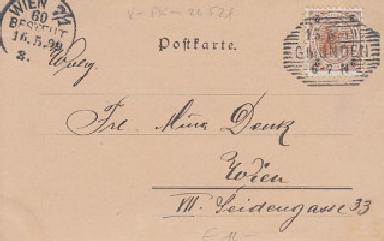 WIEN 7/1
60
BESTELLT
16.5.99
2.
V-PK-22521
Postkarte.
GMUNDEN
6-7 N
Frl. Mina Denk
Wien
VII. Seidengasse 33